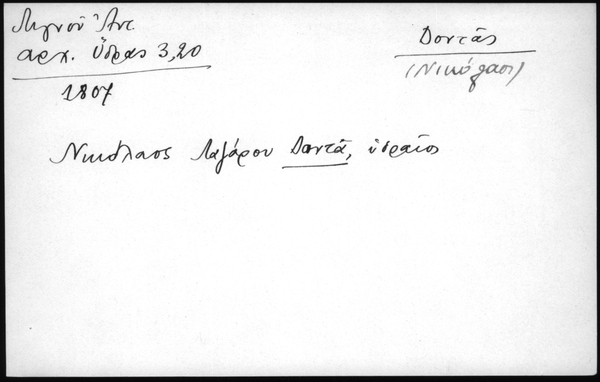 Λιγνοῦ Ἀντ.
αρχ. Ὕδρας 3,20
1807
Δοντᾶς
(Νικόλαος)
Νικόλαος Λαζάρου Δοντᾶ, ὑδραῖος